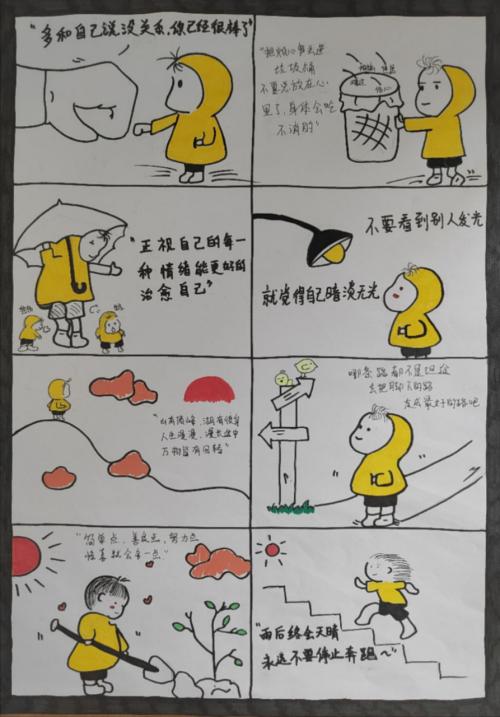 "多和自己说,没关系,你已经很棒了"
"把烦心事丢进
垃圾桶
不要总放在心
里了,身体会吃
不消的"
"正视自己的每一
种情绪能更好的
治愈自己"
不要看到别人发光
就觉得自己暗淡无光
"山有顶峰,湖有彼岸
人生漫漫,漫长途中
万物皆有回转"
哪条路都不是坦途
去把脚下的路
走成最好的路吧
"简单点,善良点,努力点
惊喜就会多一点"
"雨后终会天晴
永远不要停止奔跑~"